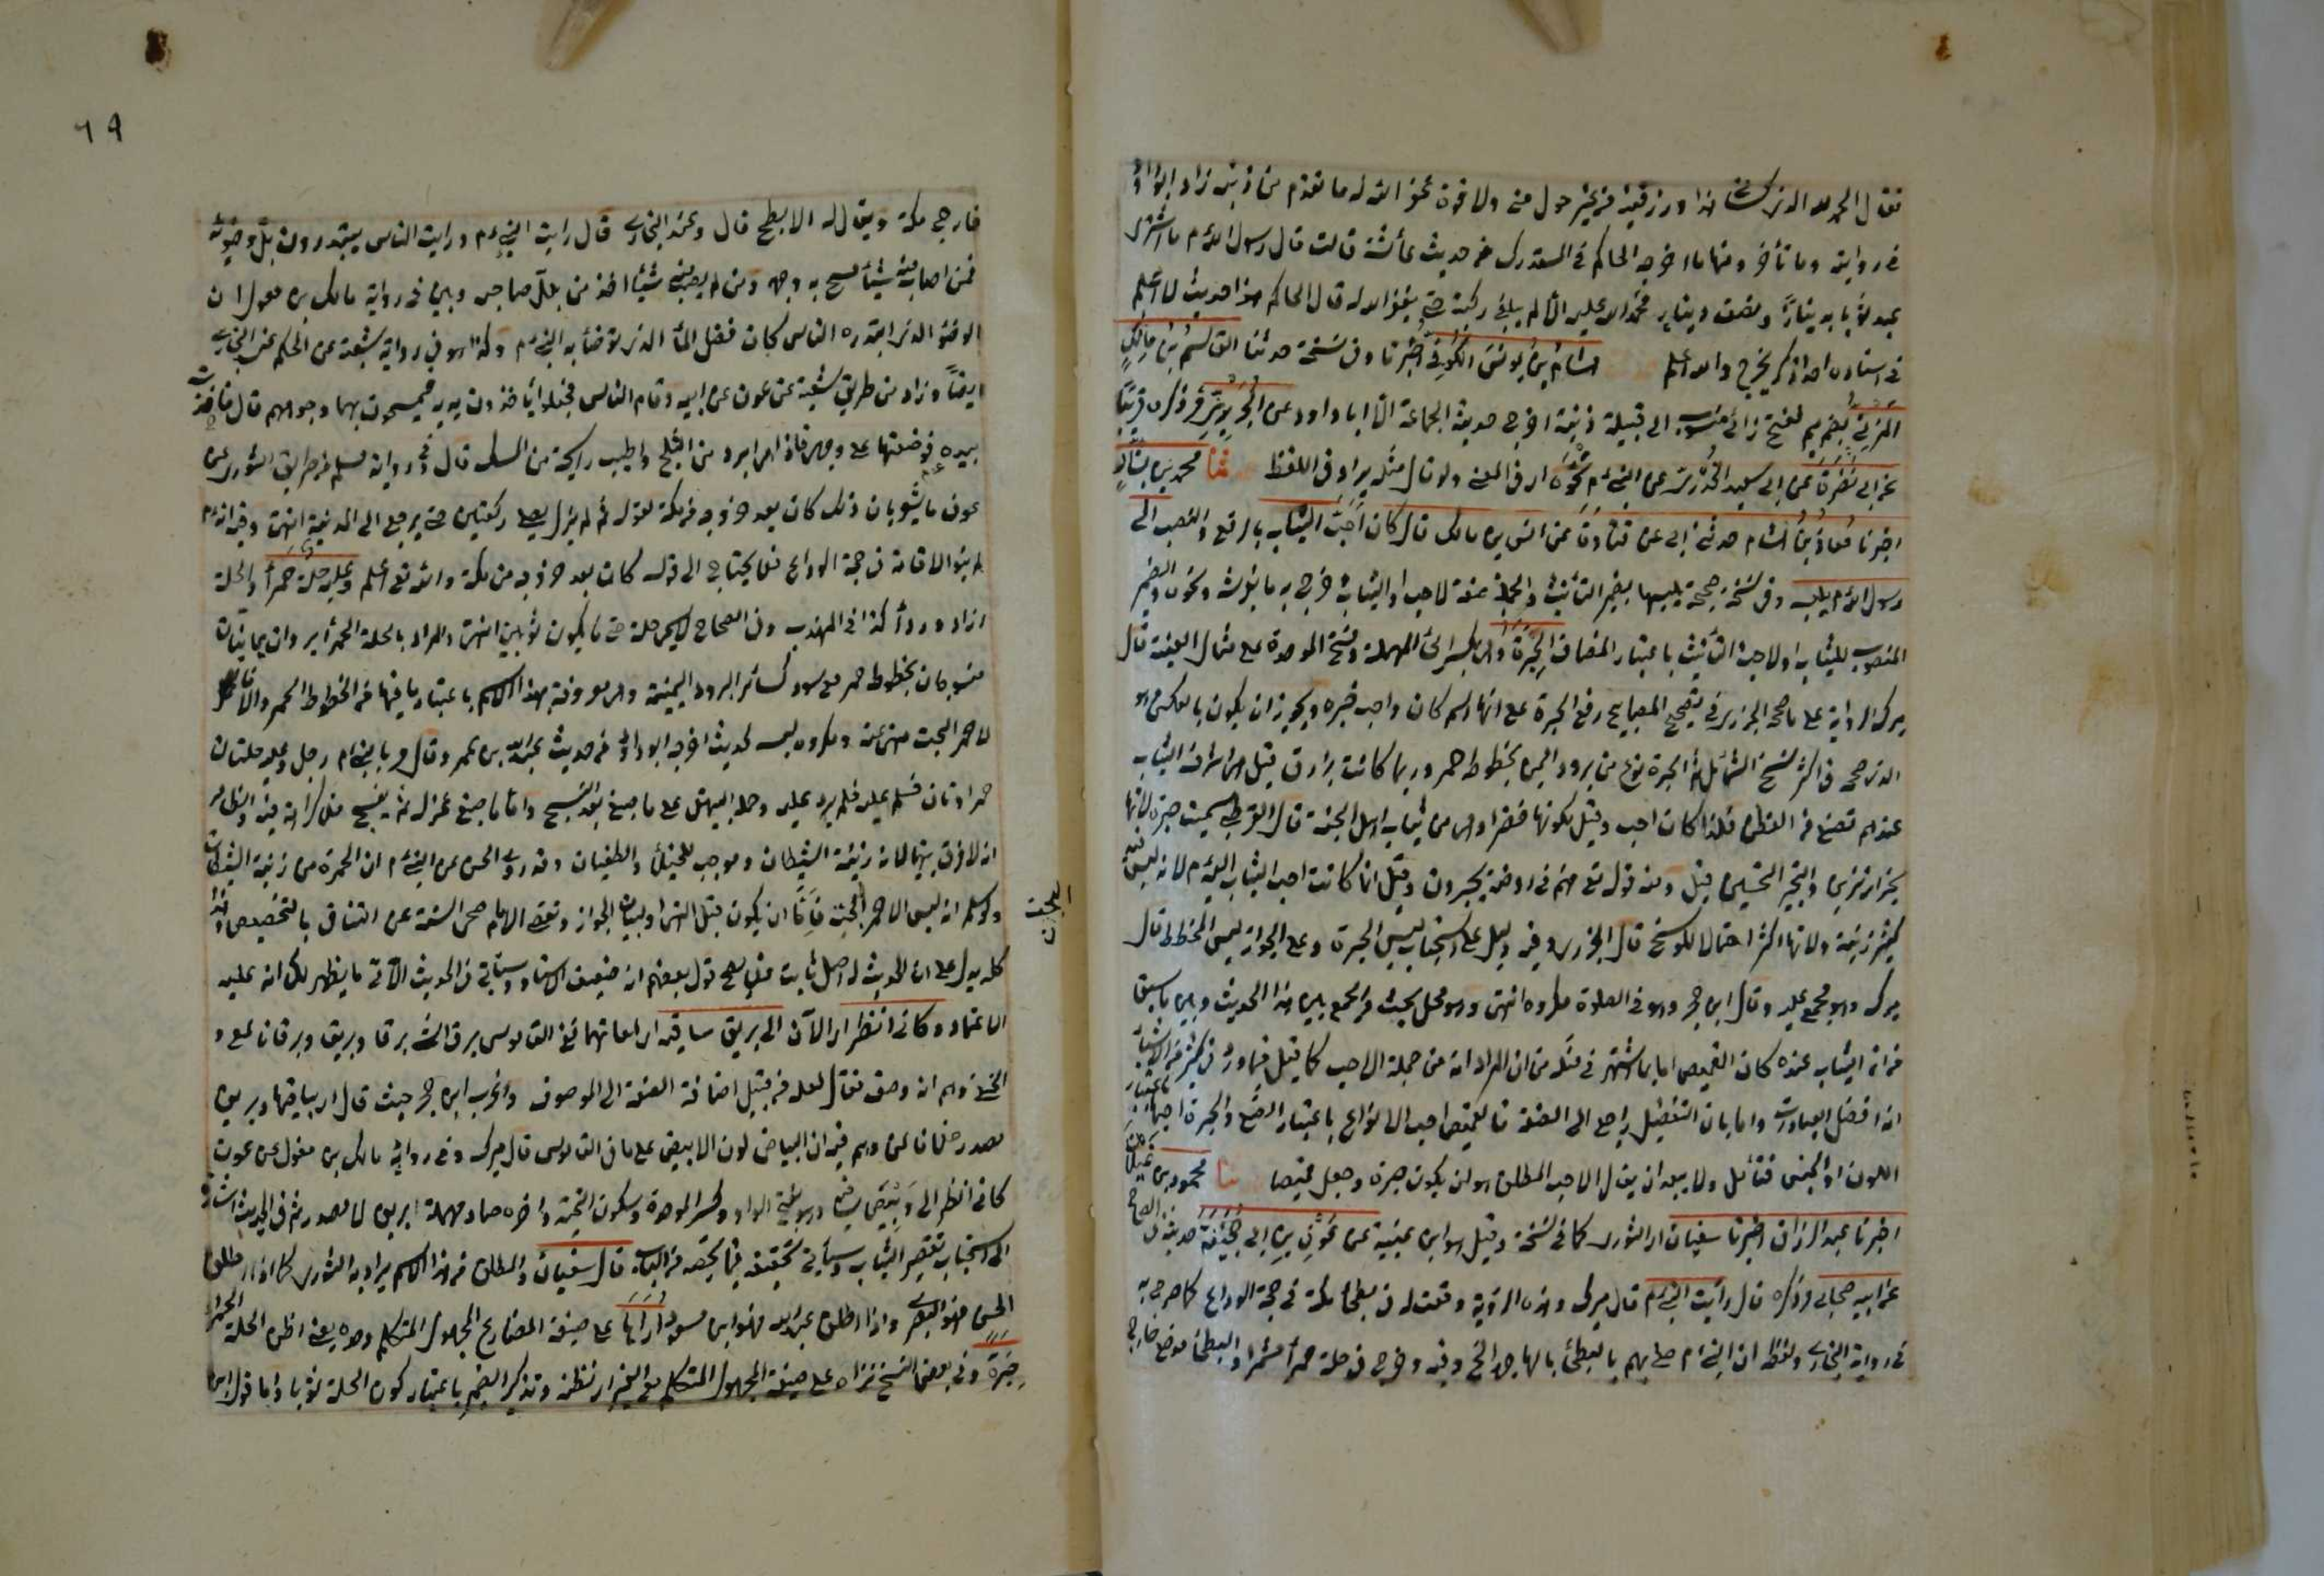 فقال الحمد لله الذي كساني هذا ورزقنيه من غير حول مني ولا قوة غفر الله له ما تقدم من ذنبه زاد ابوداود
في رواية وما تأخر ومنها ما اخرجه الحاكم في المستدرك من حديث عائشة قالت قال رسول الله م ما اشترى
عبد ثوبا بدينار ونصف دينار فحمد الله عليه الا لم يبلغ ركبتيه حتى يغفر الله له قال الحاكم هذا حديث لا اعلم
في اسناده احدا ذكر بجرح والله اعلم هشام بن يونس الكوفي اخبرنا وفي نسخة حدثنا القاسم بن مالك
المزني بضم ميم ففتح زاي منسوب الى قبيلة مزينة اخرج حديثه الجماعة الا ابا داود عن الجريري مر ذكره قريبا
عن ابي نضرة عن ابي سعيد الخدري عن النبي م نحوه اي في المعنى ولو قال مثله يراد في اللفظ ثنا محمد بن بشار
اخبرنا معاذ بن هشام حدثني ابي عن قتادة عن انس بن مالك قال كان احب الثياب بالرفع والنصب الى
رسول الله م يلبسه وفي نسخة صحيحة يلبسها بضمير التأنيث والجملة صفة لاحب او الثياب خرج به ما يفرشه ونحوه والضمير
المنصوب للثياب او لاحب والتأنيث باعتبار المضاف الحبرة وهي بكسر الحاء المهملة وفتح الموحدة على مثال العنبة قال
ميرك الرواية على ما صححه الجزري في تصحيح المصابيح رفع الحبرة على انها اسم كان واحب خبره ويجوز ان يكون بالعكس وهو
الذي صححه في اكثر نسخ الشمائل ثم الحبرة نوع من برود اليمن بخطوط حمر وربما كانت بزرق قيل هي اشرف الثياب
عندهم تصنع من القطن فلذا كان احب وقيل لكونها خضراء وهي من ثياب اهل الجنة قال القرطبي سميت حبرة لانها
تحبر اي تزين والتحبير التحسين قيل ومنه قوله تعالى فهم في روضة يحبرون وقيل انما كانت احب الثياب اليه م لانه ليس فيه
كثير زينة ولانها اكثر احتمالا للوسخ قال الجزري وفيه دليل على استحباب لبس الحبرة وعلى الجواز لبس المخطط قال
ميرك وهو مجمع عليه وقال ابن حجر وهو في الصلوة مكروه انتهى وهو محل بحث ثم الجمع بين هذا الحديث وبين ما سبق
من ان احب الثياب عنده كان القميص اما بما اشتهر في مثله من ان المراد انه من جملة الاحب كما قيل فيما ورد في كثير من الاشياء
انه افضل العبادات واما بان التفضيل راجع الى الصفة فالقميص احب الانواع باعتبار الصنع والحبرة احبها باعتبار
اللون او الجنس فتأمل ولا يبعد ان يقال الاحب المطلق هو ان يكون حبرة وجعل قميصا ثنا محمود بن غيلان
اخبرنا عبد الرزاق اخبرنا سفيان اي الثوري كما في نسخة وقيل هو ابن عيينة عن عون بن ابي جحيفة حديثه في الصحاح
عن ابيه صحابي مر ذكره قال رأيت النبي م قال ميرك وهذه الرؤية وقعت له في بطحاء مكة في حجة الوداع كما صرح به
في رواية البخاري ولفظه ان النبي م صلى بهم بالبطحاء بالهاجرة الخ وفيه وخرج في حلة حمراء مشمرا والبطحاء موضع خارج
٦٩
خارج مكة ويقال له الابطح قال وعند البخاري قال رايت النبي م ورايت الناس يبتدرون بلل وضوئه
فمن اصاب منه شيئا تمسح به وجهه ومن لم يصب منه شيئا اخذ من بلل صاحبه وبين في رواية مالك بن مغول ان
الوضوء الذي ابتدره الناس كان فضل الماء الذي توضأ به النبي م وكذا هو في رواية شعبة عن الحكم عند البخاري
ايضا وزاد من طريق شعبة عن عون عن ابيه وقام الناس فجعلوا يأخذون يديه فيمسحون بهما وجوههم قال فاخذت
بيده فوضعتها على وجهي فاذا هي ابرد من الثلج واطيب رائحة من المسك قال وفي رواية مسلم من طريق الثوري عن
عون ما يشعر بان ذلك كان بعد خروجه من مكة لقوله ثم لم يزل يصلي ركعتين حتى يرجع الى المدينة انتهى وفيه انه م
لم ينو الاقامة في حجة الوداع فلا يحتاج الى قوله كان بعد خروجه من مكة والله تعالى اعلم وعليه حلة حمراء والحلة
ازار ورداء كذا في المهذب وفي الصحاح لا يسمى حلة حتى يكون ثوبين انتهى والمراد بالحلة الحمراء بردان يمانيان
منسوجان بخطوط حمر مع سود كسائر البرود اليمنية وهي معروفة بهذا الاسم باعتبار ما فيها من الخطوط الحمر والا فالا
لاحمر البحت منهي عنه ومكروه لبسه لحديث اخرجه ابوداود من حديث عبد الله بن عمرو قال مر بالنبي م رجل وعليه حلتان
حمراوان فسلم عليه فلم يرد عليه وحمله البيهقي على ما صبغ بعد النسج واما ما صبغ غزله ثم ينسج فلا كراهة فيه والظاهر
انه لا فرق بينهما لانه زينة الشيطان وموجب للخيلاء والطغيان وقد روى الحسن عن النبي م ان الحمرة من زينة الشيطان
ولو سلم انه لبس الاحمر البحت فاما ان يكون قبل النهي او لبيان الجواز
البحت
كله يدل على ان للحديث اصل ثابت فلا يصح قول بعضهم انه ضعيف الاسناد وسيأتي في الحديث الآتي ما يظهر لك ان عليه
الاعتماد وكاني انظر اي الآن الى بريق ساقيه اي لمعانهما ففي القاموس برق الشيء برقا وبريقا وبرقانا لمع و
انه وصف فقال لعله من قبيل اضافة الصفة الى الموصوف واغرب ابن حجر حيث قال اي بياضهما وبريق
مصدر خلافا لمن وهم فيه ان البياض لون الابيض على ما في القاموس قال ميرك وفي رواية مالك بن مغول عن عون
كاني انظر الى وبيص ساقيه وهو بفتح الواو وكسر الموحدة وسكون التحتية واخره صاد مهملة البريق لا مصدر ثم في الحديث اشارة
الى استحباب تقصير الثياب وسيأتي تحقيقه فيما يخصه من الباب قال سفيان والمطلق من هذا الاسم يراد به الثوري كما اذا اطلق
الحسن فهو البصري واذا اطلق عبد الله فهو ابن مسعود اراها على صيغة المضارع المجهول المتكلم وحده يعني اظن الحلة الحمراء
حبرة وفي بعض النسخ نراه على صيغة المجهول المتكلم مع الغير اي نظنه وتذكير الضمير باعتبار كون الحلة ثوبا واما قول ابن